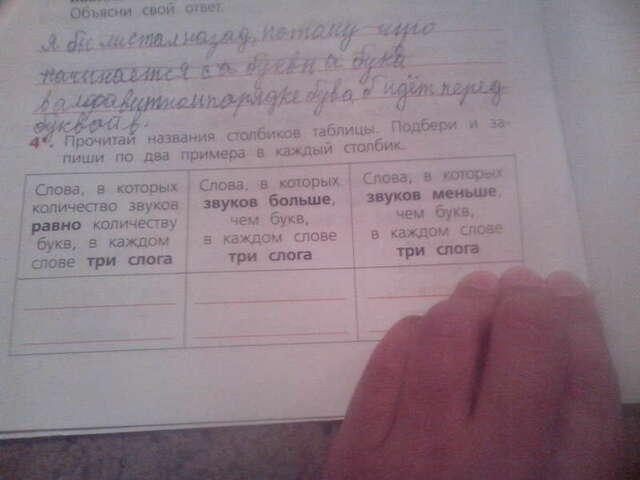 Объясни свой ответ.
я бы листал назад, потому что
начинается с буквы
в алфавитном порядке буква идёт перед
буквой
4. Прочитай названия столбиков таблицы. Подбери и за-
пиши по два примера в каждый столбик.
Слова, в которых
количество звуков
равно количеству
букв, в каждом
слове три слога
Слова, в которых
звуков больше,
чем букв,
в каждом слове
три слога
Слова, в которых
звуков меньше,
чем букв,
в каждом слове
три слога